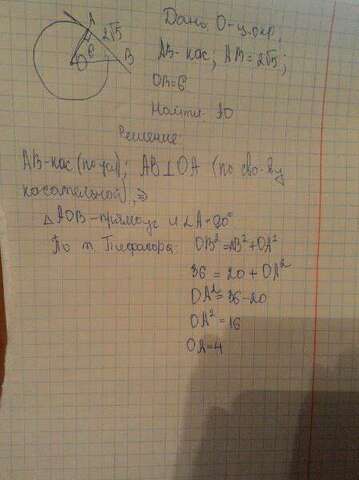 A
2√5
6
O
B
Дано O-ц.окр,
AB-кас; AB=2√5;
OB=6
Найти: AO
Решение:
AB-кас (по усл); AB⊥OA (по сво-ву
касательной), ⇒
△AOB-прямоуг и ∠A=90°
По т. Пифагора: OB²=AB²+OA²
36 = 20 + OA²
OA²=36-20
OA²=16
OA=4